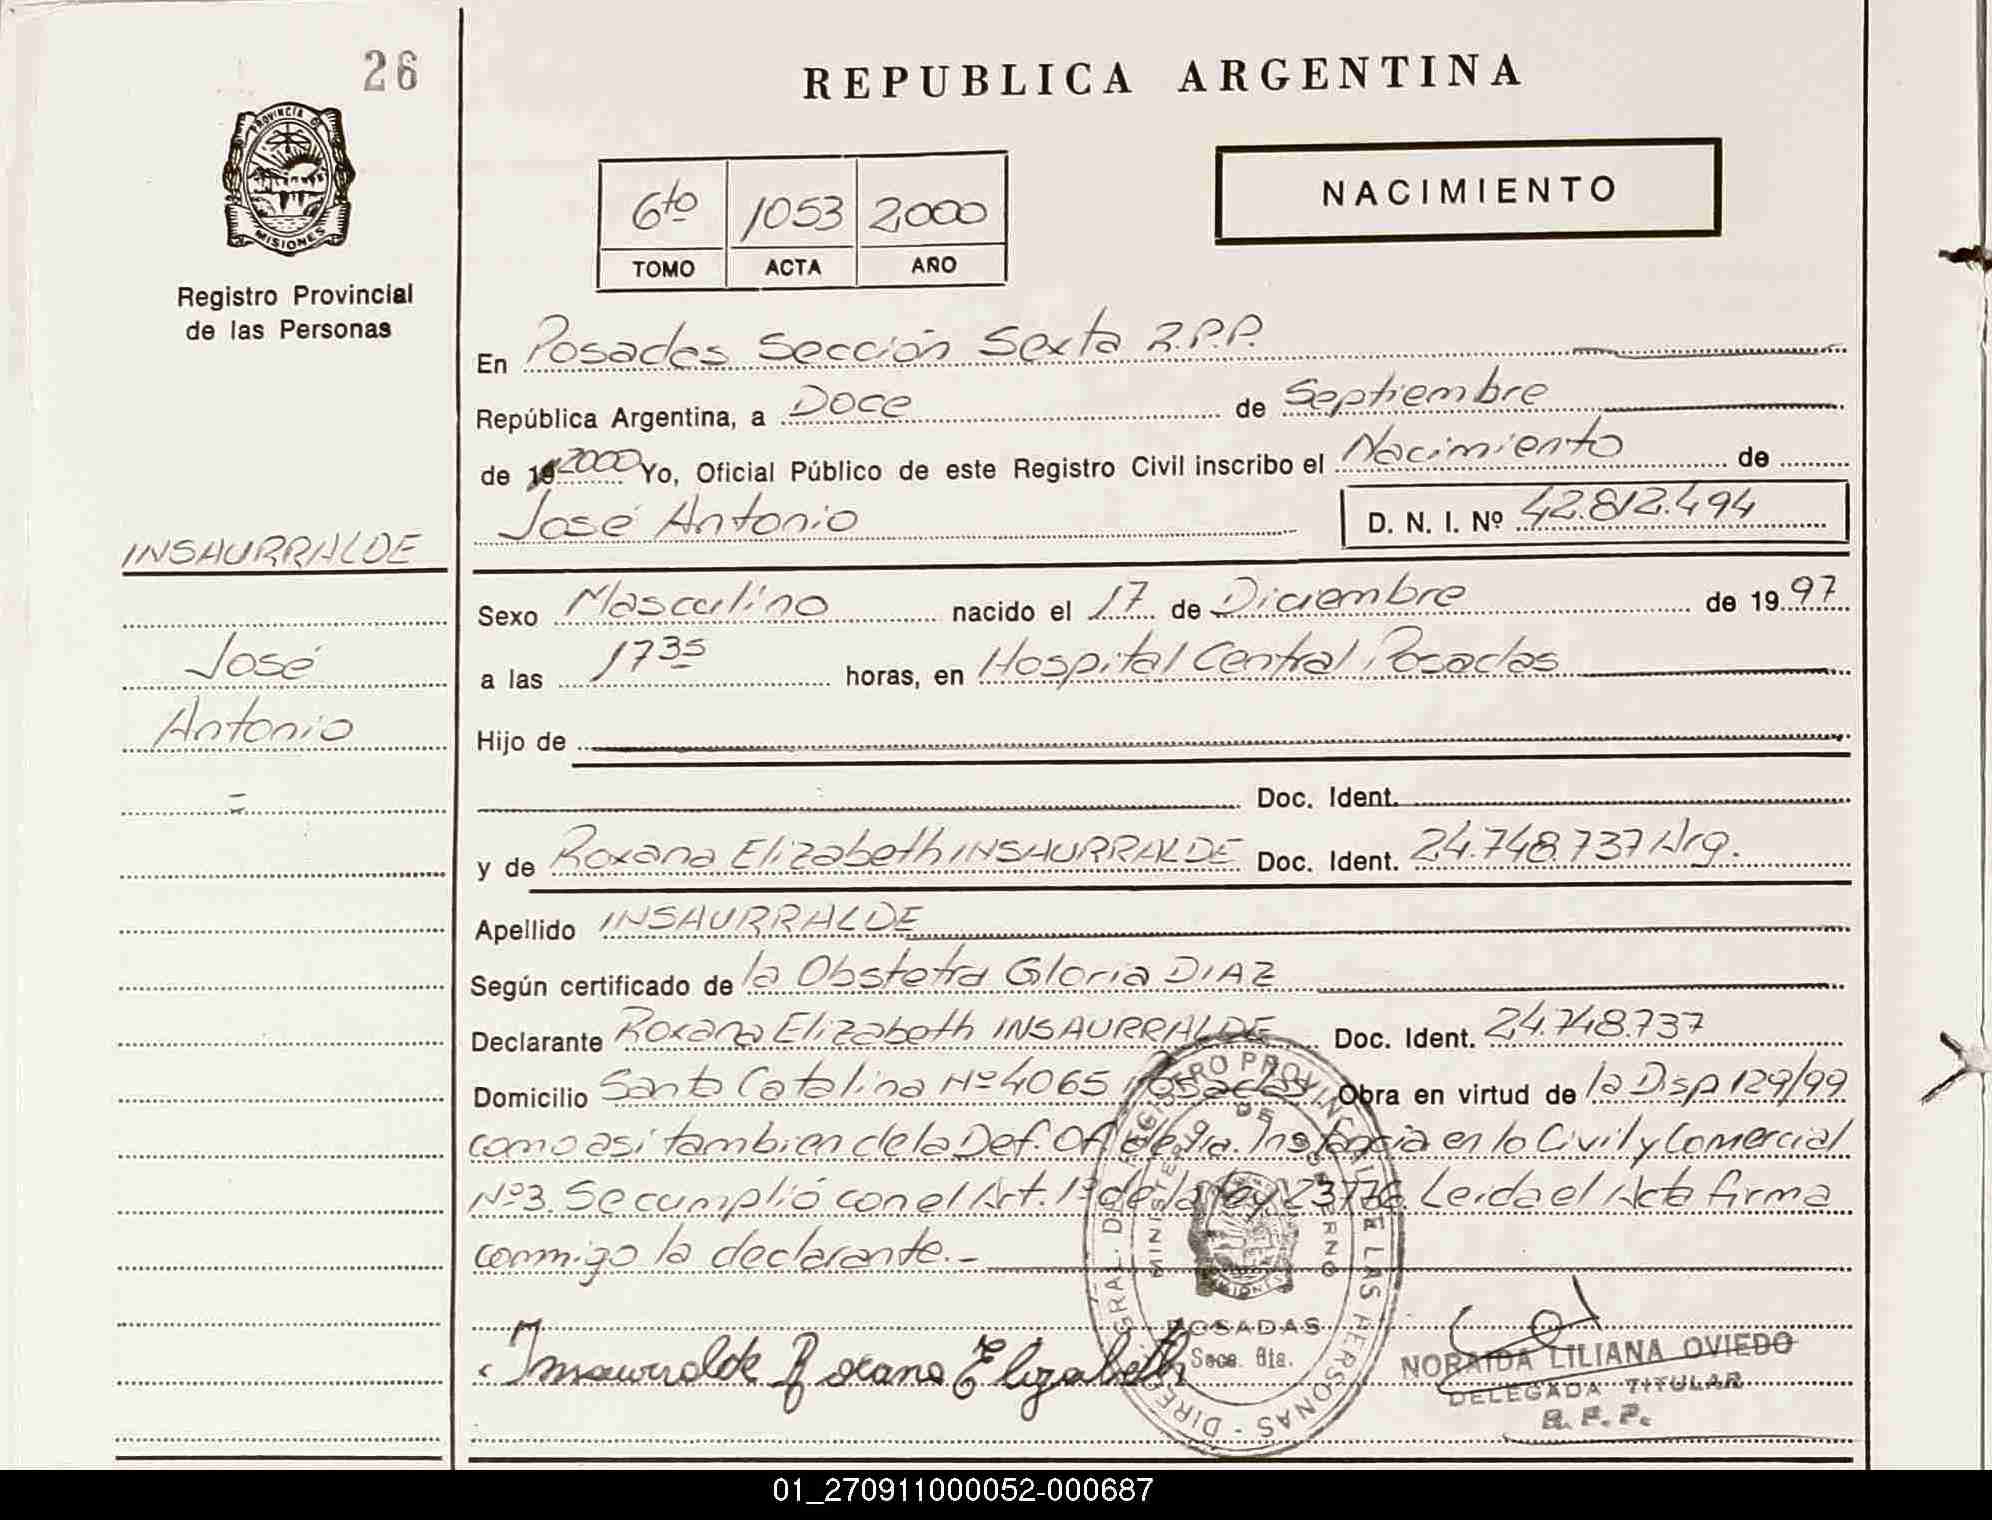 26
REPUBLICA ARGENTINA
PROVINCIA DE
MISIONES
Registro Provincial
de las Personas
6to 1053 2000
TOMO ACTA AÑO
NACIMIENTO
En Posadas Sección Sexta R.P.P.
República Argentina, a Doce de Septiembre
de 19 2000 Yo, Oficial Público de este Registro Civil inscribo el Nacimiento de
José Antonio D. N. I. Nº 42.812.494
INSAURRALDE
José
Antonio
Sexo Masculino nacido el 17 de Diciembre de 19 97
a las 1735 horas, en Hospital Central Posadas
Hijo de
Doc. Ident.
y de Roxana Elizabeth INSAURRALDE Doc. Ident. 24.748.737 Arg.
Apellido INSAURRALDE
Según certificado de la Obstetra Gloria DIAZ
Declarante Roxana Elizabeth INSAURRALDE Doc. Ident. 24.748.737
Domicilio Santa Catalina Nº 4065 Posadas. Obra en virtud de la Disp 129/99
como asi tambien de la Def. Of. de 1ra. Instancia en lo Civil y Comercial
Nº3. Se cumplió con el Art. 1º de la Ley 23776. Leida el Acta firma
conmigo la declarante.-
Insaurralde Roxana Elizabeth
DIREC. GRAL. DEL REGISTRO PROVINCIAL DE LAS PERSONAS
MINISTERIO DE GOBIERNO
MISIONES
POSADAS
Secc. 6ta.
NORAIDA LILIANA OVIEDO
DELEGADA TITULAR
R. P. P.
01_270911000052-000687